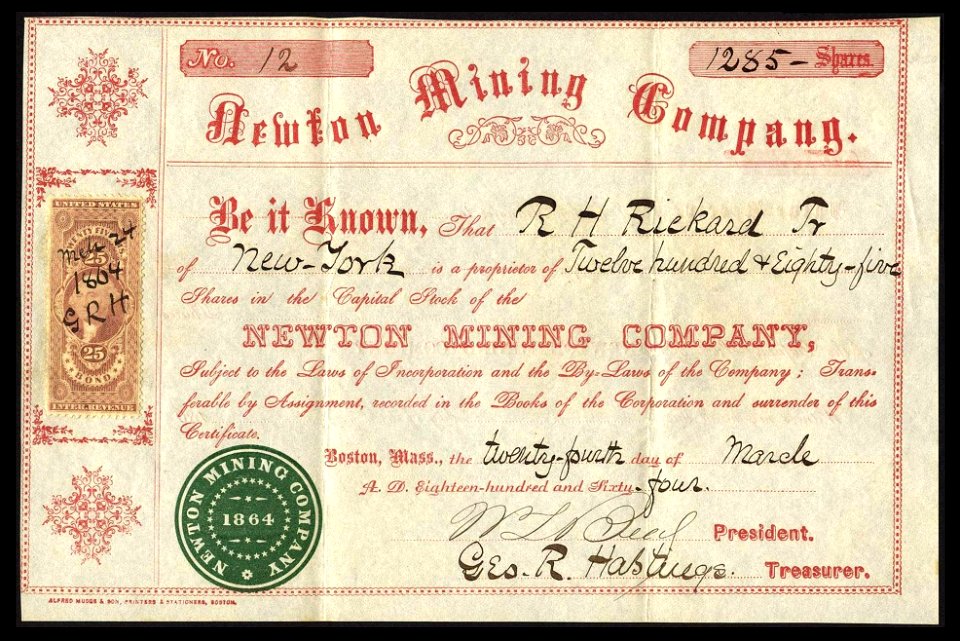 No. 12
1285- Shares
Newton Mining Company.
Be it Known, That R H Rickard Tr
of New-York is a proprietor of Twelve hundred & Eighty-five
Shares in the Capital Stock of the
NEWTON MINING COMPANY,
Subject to the Laws of Incorporation and the By-Laws of the Company; Trans-
ferable by Assignment, recorded in the Books of the Corporation and surrender of this
Certificate.
Boston, Mass., the twenty-fourth day of March
A. D. Eighteen-hundred and Sixty-four.
President.
Geo. R. Hastings. Treasurer.
UNITED STATES
25
24
1864
GRH
25
BOND.
INTER. REVENUE
NEWTON MINING COMPANY
1864
ALFRED MUDGE & SON, PRINTERS & STATIONERS, BOSTON.